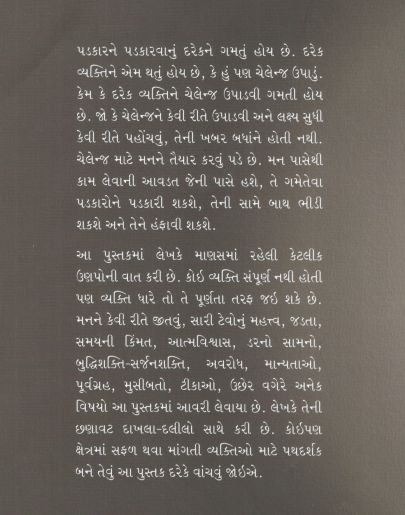 પડકારને પડકારવાનું દરેકને ગમતું હોય છે. દરેક
વ્યક્તિને એમ થતું હોય છે, કે હું પણ ચેલેન્જ ઉપાડું.
કેમ કે દરેક વ્યક્તિને ચેલેન્જ ઉપાડવી ગમતી હોય
છે. જો કે ચેલેન્જને કેવી રીતે ઉપાડવી અને લક્ષ્ય સુધી
કેવી રીતે પહોંચવું, તેની ખબર બધાંને હોતી નથી.
ચેલેન્જ માટે મનને તૈયાર કરવું પડે છે. મન પાસેથી
કામ લેવાની આવડત જેની પાસે હશે, તે ગમેતેવા
પડકારોને પડકારી શકશે, તેની સામે બાથ ભીડી
શકશે અને તેને હંફાવી શકશે.
આ પુસ્તકમાં લેખકે માણસમાં રહેલી કેટલીક
ઉણપોની વાત કરી છે. કોઇ વ્યક્તિ સંપૂર્ણ નથી હોતી
પણ વ્યક્તિ ધારે તો તે પૂર્ણતા તરફ જઇ શકે છે.
મનને કેવી રીતે જીતવું, સારી ટેવોનું મહત્ત્વ, જડતા,
સમયની કિંમત, આત્મવિશ્વાસ, ડરનો સામનો,
બુદ્ધિશક્તિ-સર્જનશક્તિ, અવરોધ, માન્યતાઓ,
પૂર્વગ્રહ, મુસીબતો, ટીકાઓ, ઉછેર વગેરે અનેક
વિષયો આ પુસ્તકમાં આવરી લેવાયા છે. લેખકે તેની
છણાવટ દાખલા-દલીલો સાથે કરી છે. કોઇપણ
ક્ષેત્રમાં સફળ થવા માંગતી વ્યક્તિઓ માટે પથદર્શક
બને તેવું આ પુસ્તક દરેકે વાંચવું જોઇએ.